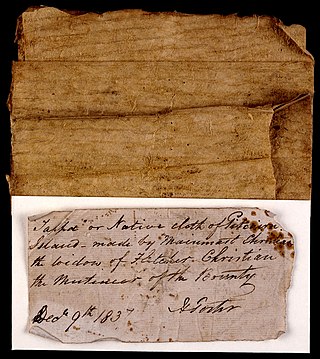 Tappa or Native cloth of Pitcairn
Island made by Mauimast Christian
the widow of Fletcher Christian
the Mutineer of the Bounty
Decr 9th 1837